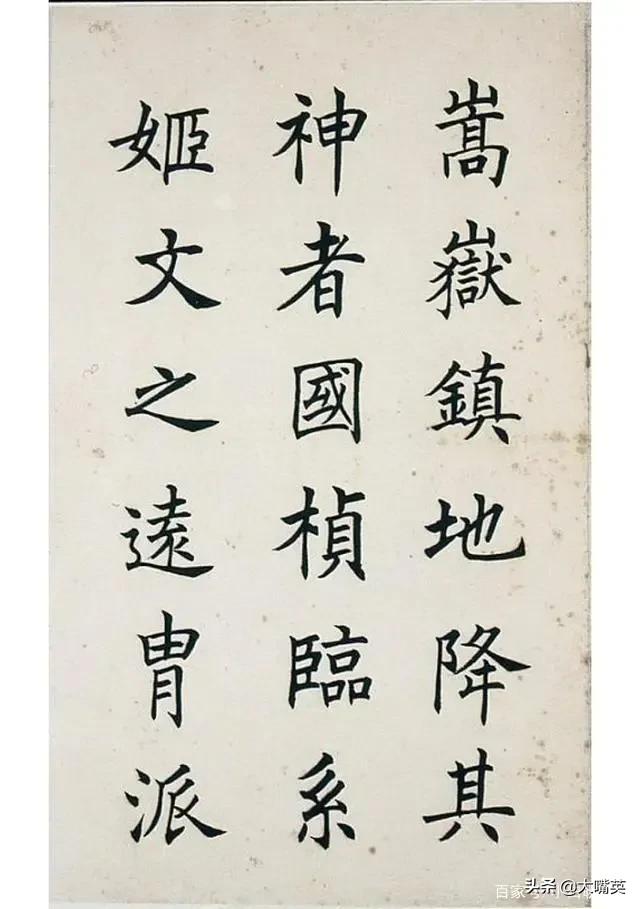 嵩嶽鎮地降其
神者國楨臨系
姬文之遠胄派
头条 @大嘴英
百家号